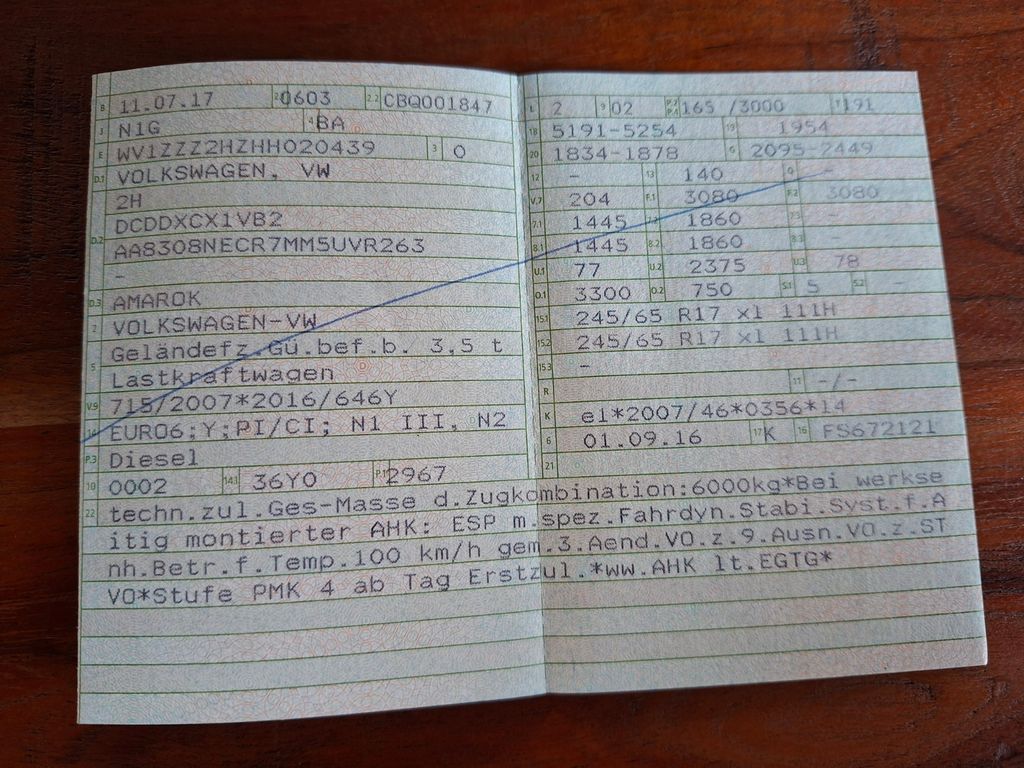 B 11.07.17 2.1 0603 2.2 CBQ001847
J N1G 4 BA
E WV1ZZZ2HZHH020439 3 0
D.1 VOLKSWAGEN, VW
2H
DCDDXCX1VB2
D.2 AA8308NECR7MM5UVR263
-
D.3 AMAROK
2 VOLKSWAGEN-VW
Geländefz.Gü.bef.b. 3,5 t
5 Lastkraftwagen
V.9 715/2007*2016/646Y
14 EURO6;Y;PI/CI; N1 III, N2
P.3 Diesel
10 0002 14.1 36Y0 P.1 2967
L 2 9 02 P.2 P.4 165 /3000 T 191
18 5191-5254 19 1954
20 1834-1878 G 2095-2449
12 - 13 140 Q -
V.7 204 F.1 3080 F.2 3080
7.1 1445 7.2 1860 7.3 -
8.1 1445 8.2 1860 8.3 -
U.1 77 U.2 2375 U.3 78
O.1 3300 O.2 750 S.1 5 S.2 -
15.1 245/65 R17 x1 111H
15.2 245/65 R17 x1 111H
15.3 -
R 11 -/-
K e1*2007/46*0356*14
6 01.09.16 17 K 16 FS672121
21
22 techn.zul.Ges-Masse d.Zugkombination:6000kg*Bei werkse
itig montierter AHK: ESP m.spez.Fahrdyn.Stabi.Syst.f.A
nh.Betr.f.Temp.100 km/h gem.3.Aend.VO.z.9.Ausn.VO.z.ST
VO*Stufe PMK 4 ab Tag Erstzul.*ww.AHK lt.EGTG*